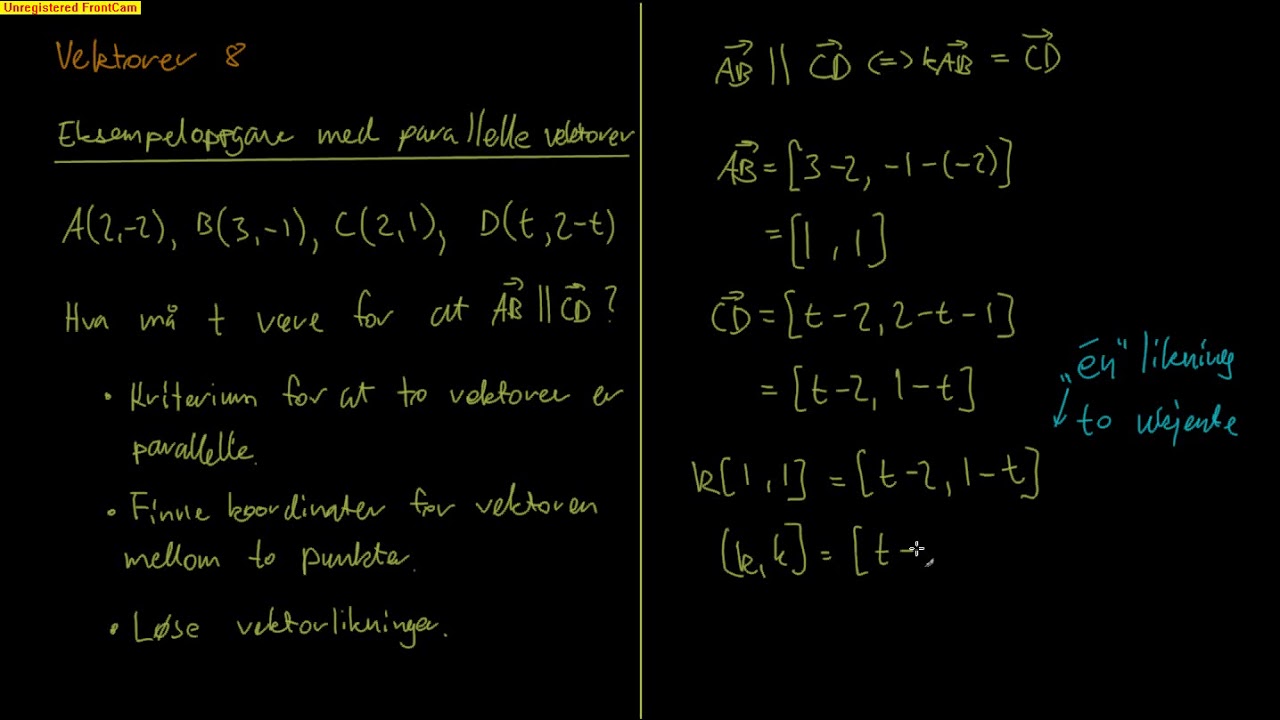 Unregistered FrontCam
Vektorer 8
Eksempeloppgave med parallelle vektorer
A(2,-2), B(3,-1), C(2,1), D(t,2-t)
Hva må t være for at AB⃗ || CD⃗ ?
• Kriterium for at to vektorer er
parallelle.
• Finne koordinater for vektoren
mellom to punkter.
• Løse vektorlikninger.
AB⃗ || CD⃗ <=> kAB⃗ = CD⃗
AB⃗ = [3-2, -1-(-2)]
= [1, 1]
CD⃗ = [t-2, 2-t-1]
= [t-2, 1-t]
"én" likning
to ukjente
k[1, 1] = [t-2, 1-t]
[k, k] = [t-